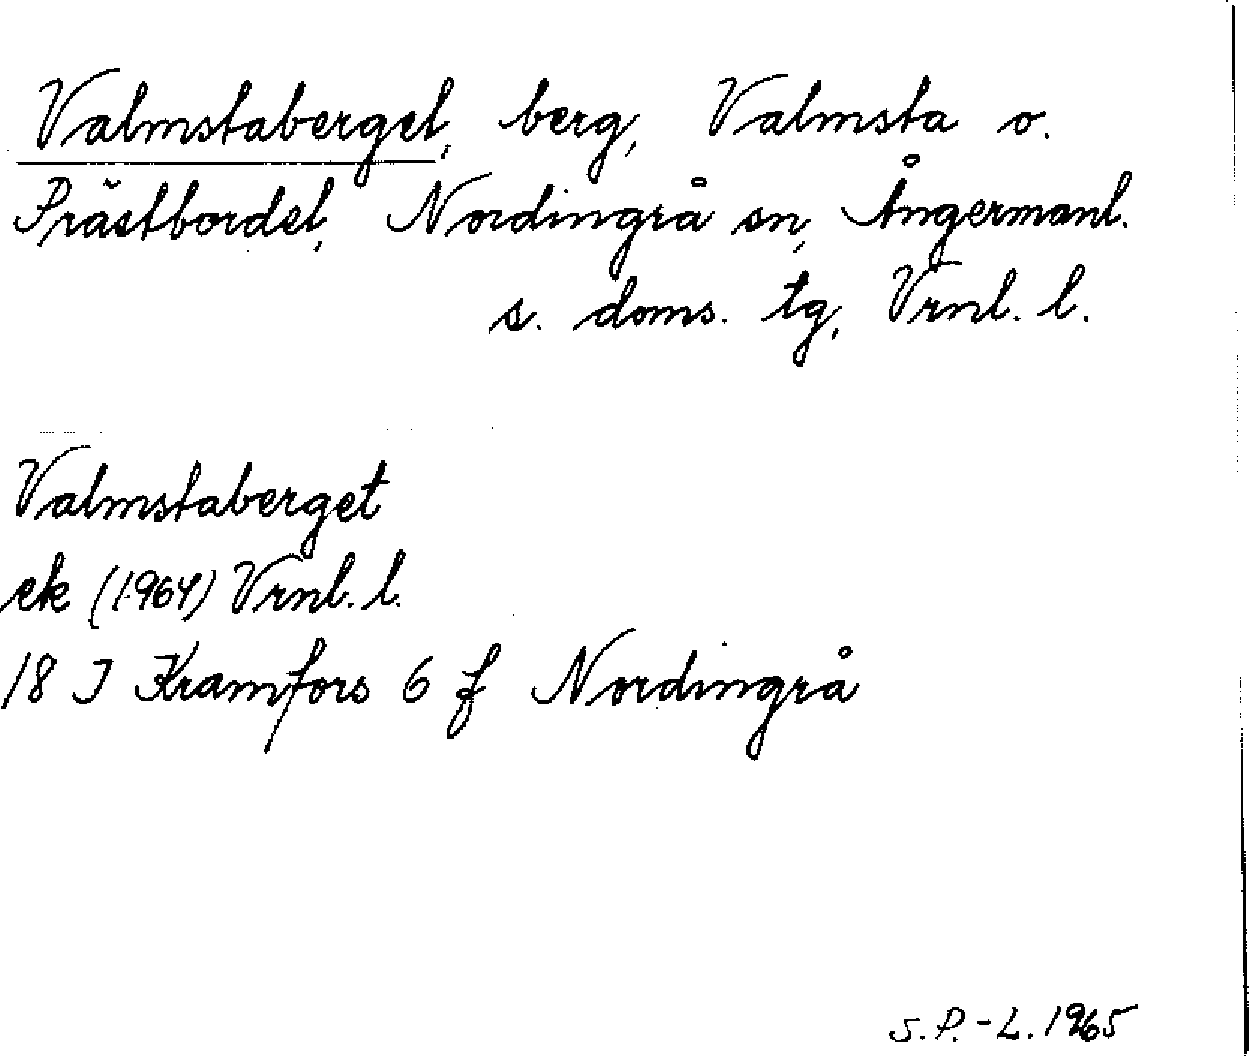 Valmstaberget, berg, Valmsta o.
Prästbordet, Nordingrå sn, Ångermanl.
s. doms. tg, Vrnl. l.
Valmstaberget
ek (1964) Vrnl. l.
18 J Kramfors 6 f Nordingrå
S.P.-L. 1965